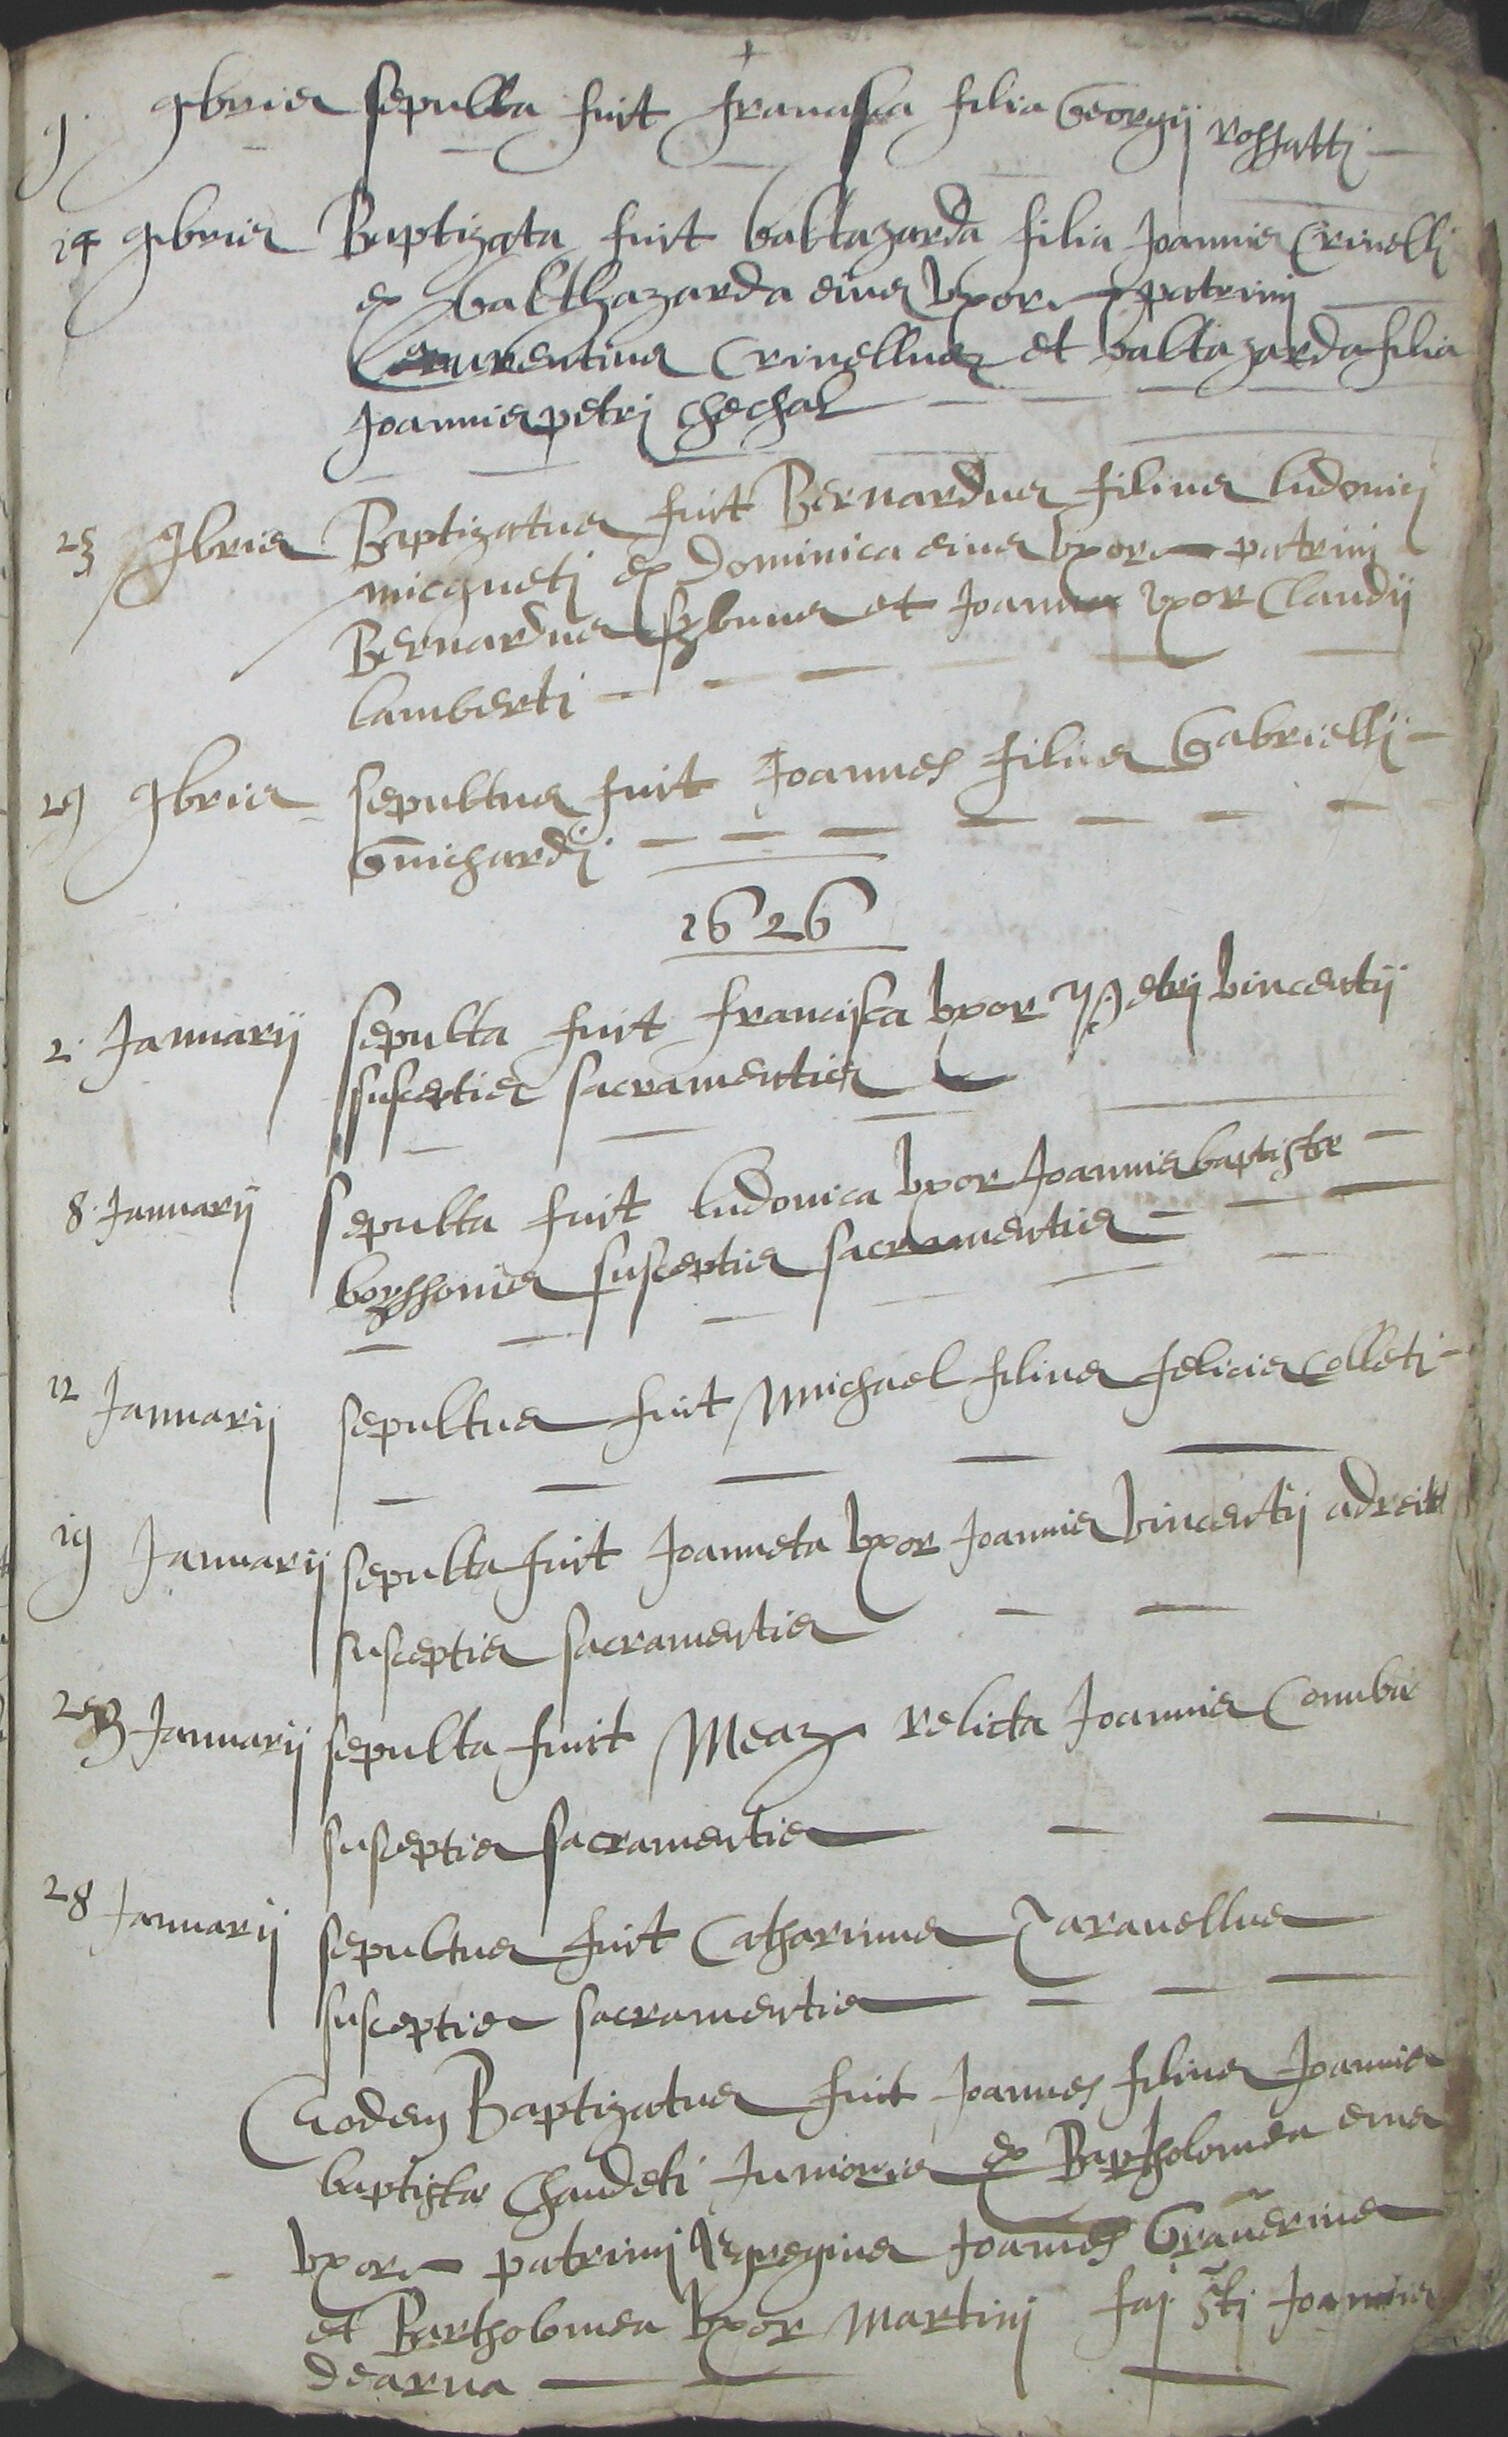 9. 9bris sepulta fuit francisca filia Georgij rossatti
14 9bris Baptizata fuit baltazarda filia Joannis Crinelli
ex balthazarda eius uxore patrini
Laurentius Crinellus et baltazarda filia
Joannis petri chechal
23 9bris Baptizatus fuit Bernardus filius ludovici
micqueti ex Dominica eius uxore patrini
Bernardus et Joanna uxor Claudij
lamberti
29 9bris sepultus fuit Joannes filius Gabrielis
Guichardi
1626
2. Januarij sepulta fuit francisca uxor Petri vincentij
susceptis sacramentis
8. Januarij sepulta fuit ludovica uxor Joannis baptistæ
susceptis sacramentis
12 Januarij sepultus fuit Michael filius felicis Colleti
19 Januarij sepulta fuit Joanneta uxor Joannis vincentij
susceptis sacramentis
Januarij sepulta fuit relicta Joannis
susceptis sacramentis
28 Januarij sepultus fuit Catharinus
susceptis sacramentis
Eodem Baptizatus fuit Joannes filius Joannis
baptistæ Chaudeti Junioris ex Bartholomea eius
uxore patrini Egregius Joannes
et Bartholomea uxor Martini Sti Joannis
dearua